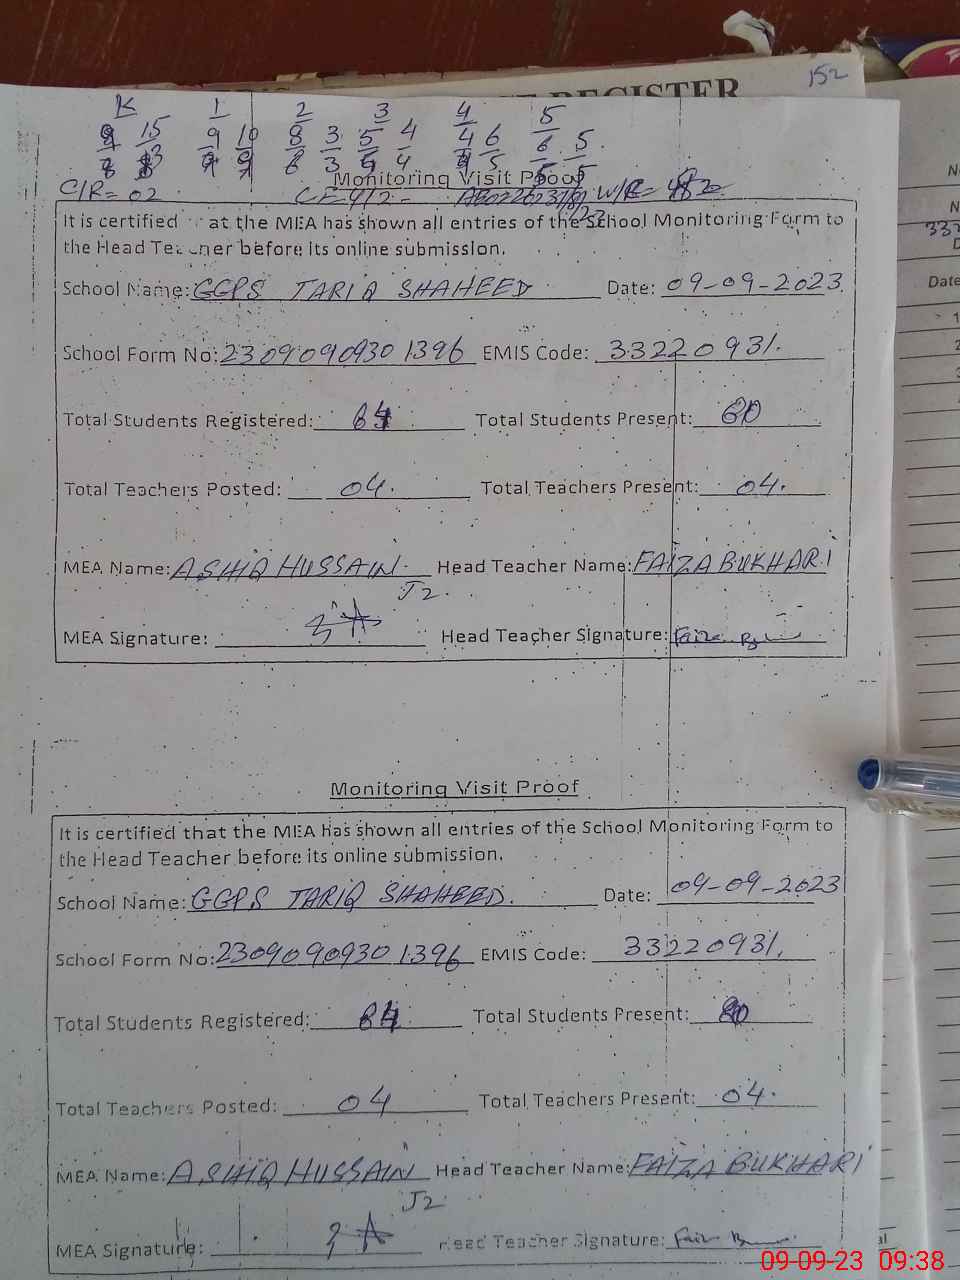 152
REGISTER
K 1 2 3 4 5
15 9 10 8 3 5 4 4 6 6 5
3 4 5
C/R= 02
Monitoring Visit Proof
It is certified at the MEA has shown all entries of the School Monitoring Form to
the Head Teacher before its online submission.
School Name: GGPS TARIQ SHAHEED Date: 09-09-2023
School Form No: 23090909301396 EMIS Code: 33220931.
Total Students Registered: 84 Total Students Present: 80
Total Teachers Posted: 04. Total Teachers Present: 04.
MEA Name: ASHIQ HUSSAIN. Head Teacher Name: FAIZA BUKHARI
J2.
MEA Signature: Head Teacher Signature: Faiza
Monitoring Visit Proof
It is certified that the MEA has shown all entries of the School Monitoring Form to
the Head Teacher before its online submission.
School Name: GGPS TARIQ SHAHEED. Date: 09-09-2023
School Form No: 23090909301396 EMIS Code: 33220931.
Total Students Registered: 84 Total Students Present: 80
Total Teachers Posted: 04 Total Teachers Present: 04.
MEA Name: ASHIQ HUSSAIN Head Teacher Name: FAIZA BUKHARI
J2
MEA Signature: Head Teacher Signature: Faiza
09-09-23 09:38